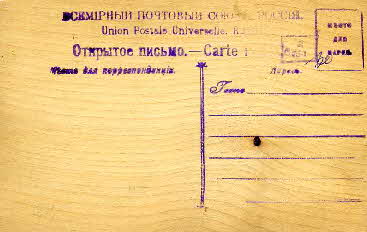 ВСЕМІРНЫЙ ПОЧТОВЫЙ СОЮЗЪ РОССІЯ.
Union Postale Universelle. R
Открытое письмо.—Carte
Мѣсто для корреспонденціи.
Адресъ.
МѢСТО
ДЛЯ
МАРКИ.